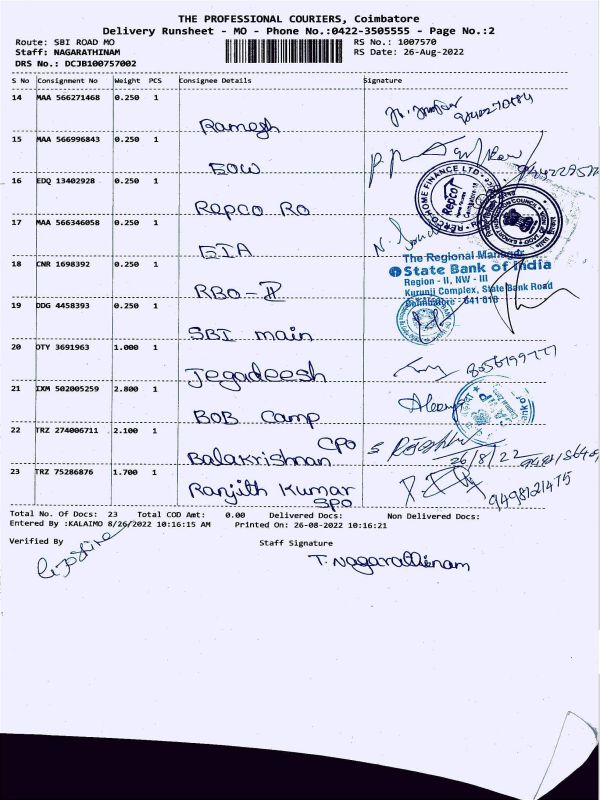 THE PROFESSIONAL COURIERS, Coimbatore
Delivery Runsheet - MO - Phone No.:0422-3505555 - Page No.:2
Route: SBI ROAD MO
RS No.: 1007570
Staff: NAGARATHINAM
RS Date: 26-Aug-2022
DRS No.: DCJB100757002
S No Consignment No Weight PCS Consignee Details Signature
14 MAA 566271468 0.250 1
Ramesh
15 MAA 566996843 0.250 1
EOW
16 EDQ 13402928 0.250 1
Repco Ro
REPCO HOME FINANCE LTD
Repco
17 MAA 566346058 0.250 1
EIA
18 CNR 1698392 0.250 1
RBO-II
The Regional Manager
State Bank of India
Region - II, NW - III
Kurunji Complex, State Bank Road
Coimbatore - 641 018
19 DDG 4458393 0.250 1
SBI main
20 OTY 3691963 1.000 1
Jegadeesh
8056199777
21 IXM 502005259 2.800 1
BOB Camp
22 TRZ 274006711 2.100 1
CPO
Balakrishnan
26/8/22
23 TRZ 75286876 1.700 1
Ranjith Kumar
SPO
9498121475
Total No. Of Docs: 23 Total COD Amt: 0.00 Delivered Docs: Non Delivered Docs:
Entered By :KALAIMO 8/26/2022 10:16:15 AM Printed On: 26-08-2022 10:16:21
Verified By
Staff Signature
T. Nagarathinam